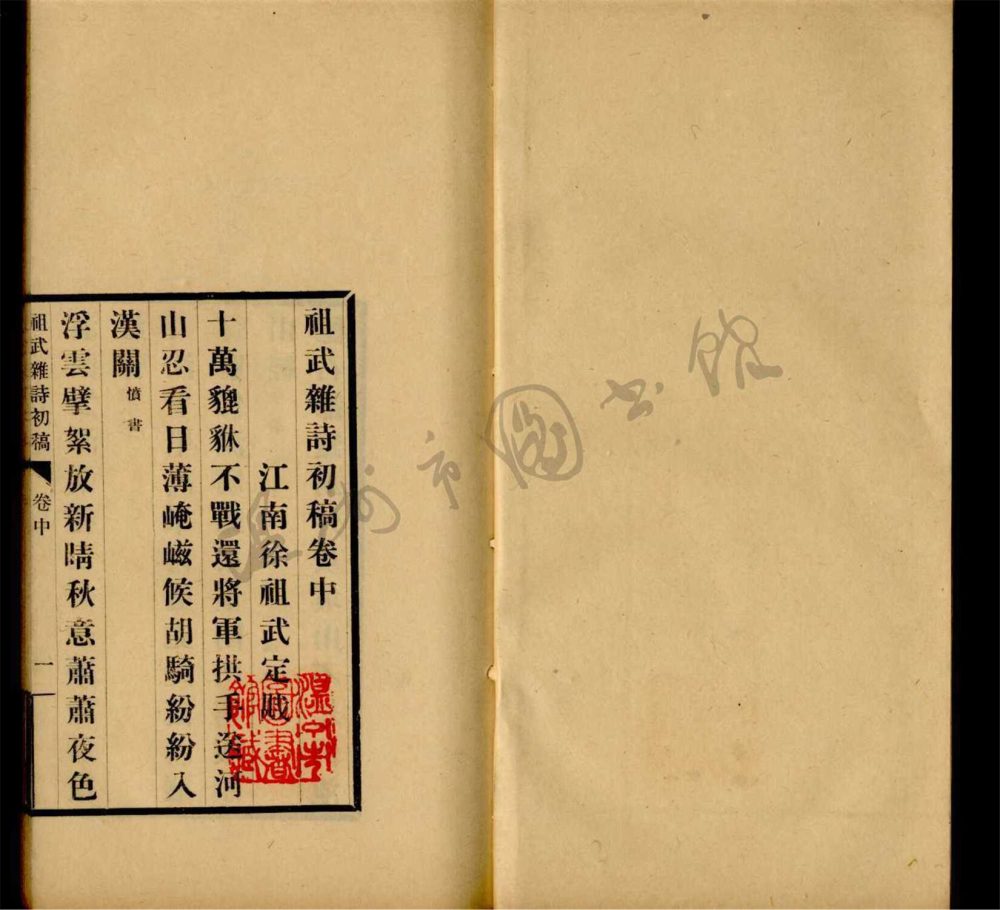 祖武雜詩初稿卷中
江南徐祖武定戡
十萬貔貅不戰還將軍拱手送河
山忍看日薄崦嵫候胡騎紛紛入
漢關 憤書
浮雲擘絮放新晴秋意蕭蕭夜色
祖武雜詩初稿 卷中 一
溫州市圖書館藏
溫州市圖書館